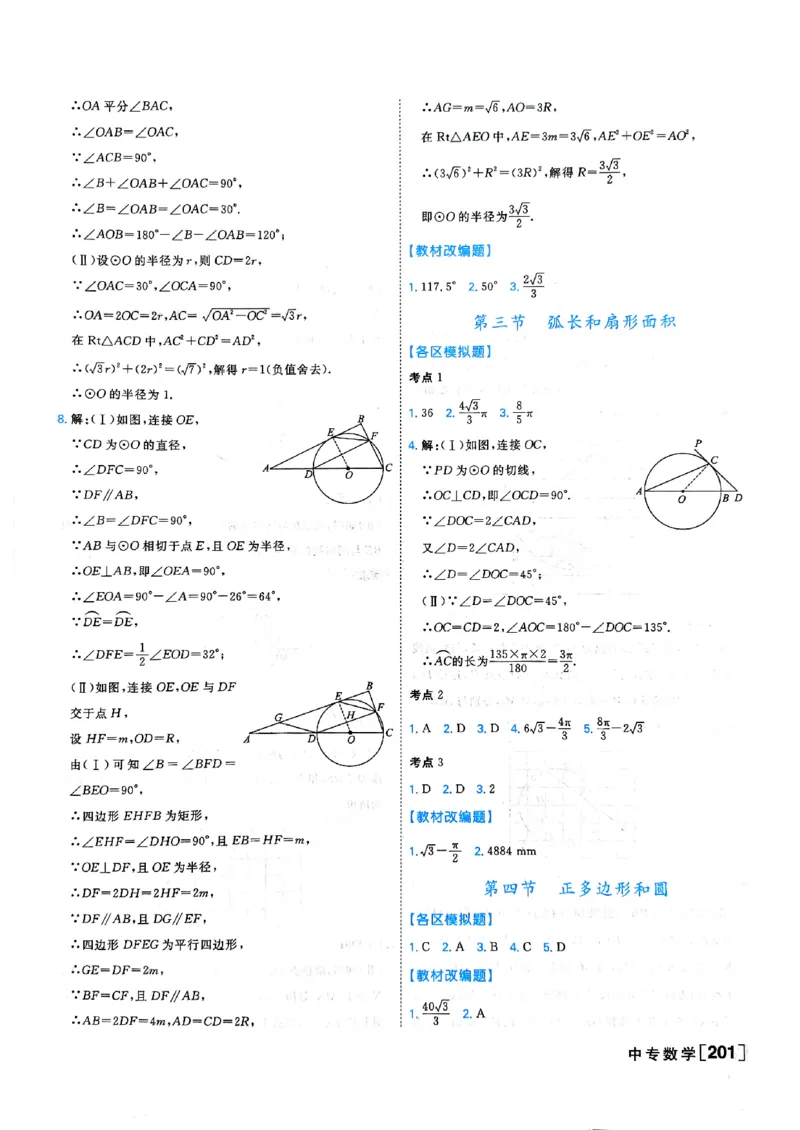 ∴OA平分∠BAC,
∴∠OAB=∠OAC,
∵∠ACB=90°,
∴∠B+∠OAB+∠OAC=90°,
∴∠B=∠OAB=∠OAC=30°.
∴∠AOB=180°-∠B-∠OAB=120°;
(Ⅱ)设⊙O的半径为r,则CD=2r,
∵∠OAC=30°,∠OCA=90°,
∴OA=2OC=2r,AC=√(OA²-OC²)=√3r,
在Rt△ACD中,AC²+CD²=AD²,
∴(√3r)²+(2r)²=(√7)²,解得r=1(负值舍去).
∴⊙O的半径为1.
8.解:(Ⅰ)如图,连接OE,
∵CD为⊙O的直径,
∴∠DFC=90°,
∵DF∥AB,
∴∠B=∠DFC=90°,
∵AB与⊙O相切于点E,且OE为半径,
∴OE⊥AB,即∠OEA=90°,
∴∠EOA=90°-∠A=90°-26°=64°,
∵DE=DE,
∴∠DFE=1/2∠EOD=32°;
(Ⅱ)如图,连接OE,OE与DF
交于点H,
设HF=m,OD=R,
由(Ⅰ)可知∠B=∠BFD=
∠BEO=90°,
∴四边形EHFB为矩形,
∴∠EHF=∠DHO=90°,且EB=HF=m,
∵OE⊥DF,且OE为半径,
∴DF=2DH=2HF=2m,
∵DF∥AB,且DG∥EF,
∴四边形DFEG为平行四边形,
∴GE=DF=2m,
∵BF=CF,且DF∥AB,
∴AB=2DF=4m,AD=CD=2R,
B
E
F
A
D
O
C
B
E
F
G
H
A
D
O
C
∴AG=m=√6,AO=3R,
在Rt△AEO中,AE=3m=3√6,AE²+OE²=AO²,
∴(3√6)²+R²=(3R)²,解得R=3√3/2,
即⊙O的半径为3√3/2.
【教材改编题】
1.117.5° 2.50° 3.2√3/3
第三节 弧长和扇形面积
【各区模拟题】
考点1
1.36 2.4√3/3π 3.8/5π
4.解:(Ⅰ)如图,连接OC,
∵PD为⊙O的切线,
∴OC⊥CD,即∠OCD=90°.
∵∠DOC=2∠CAD,
又∠D=2∠CAD,
∴∠D=∠DOC=45°;
(Ⅱ)∵∠D=∠DOC=45°,
∴OC=CD=2,∠AOC=180°-∠DOC=135°.
∴AC的长为135×π×2/180=3π/2.
P
C
A
O
B
D
考点2
1.A 2.D 3.D 4.6√3-4π/3 5.8π/3-2√3
考点3
1.D 2.D 3.2
【教材改编题】
1.√3-π/2 2.4884 mm
第四节 正多边形和圆
【各区模拟题】
1.C 2.A 3.B 4.C 5.D
【教材改编题】
1.40√3/3 2.A
中专数学[201]